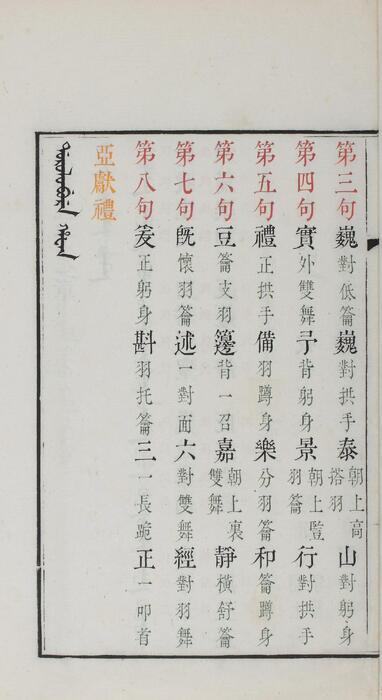 第三句巍對低籥巍對拱手泰朝上高搭羽山對躬身
第四句實外雙舞予背躬身景朝上豎羽籥行對拱手
第五句禮正拱手備羽蹲身樂分羽籥和籥蹲身
第六句豆籥支羽籩背一召嘉朝上裏雙舞靜橫舒籥
第七句旣懷羽籥述一對面六對雙舞經對羽舞
第八句爰正躬身斟羽托籥三一長跪正一叩首
亞獻禮